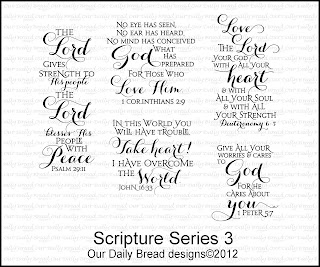 The
Lord
Gives
Strength to
His people
The
Lord
blesses His
People
with
Peace
Psalm 29:11
No eye has seen,
No ear has heard,
No mind has conceived
God what
has
prepared
For those who
Love Him.
1 Corinthians 2:9
In this world you
will have trouble.
Take heart!
I have overcome
the
World
John 16:33
Love
The Lord
Your God
with All Your
heart
& with
All Your Soul
& with All
Your Strength
Deuteronomy 6:5
Give all your
worries & cares
to
God
For He
cares about
you
1 Peter 5:7
Scripture Series 3
Our Daily Bread designs©2012